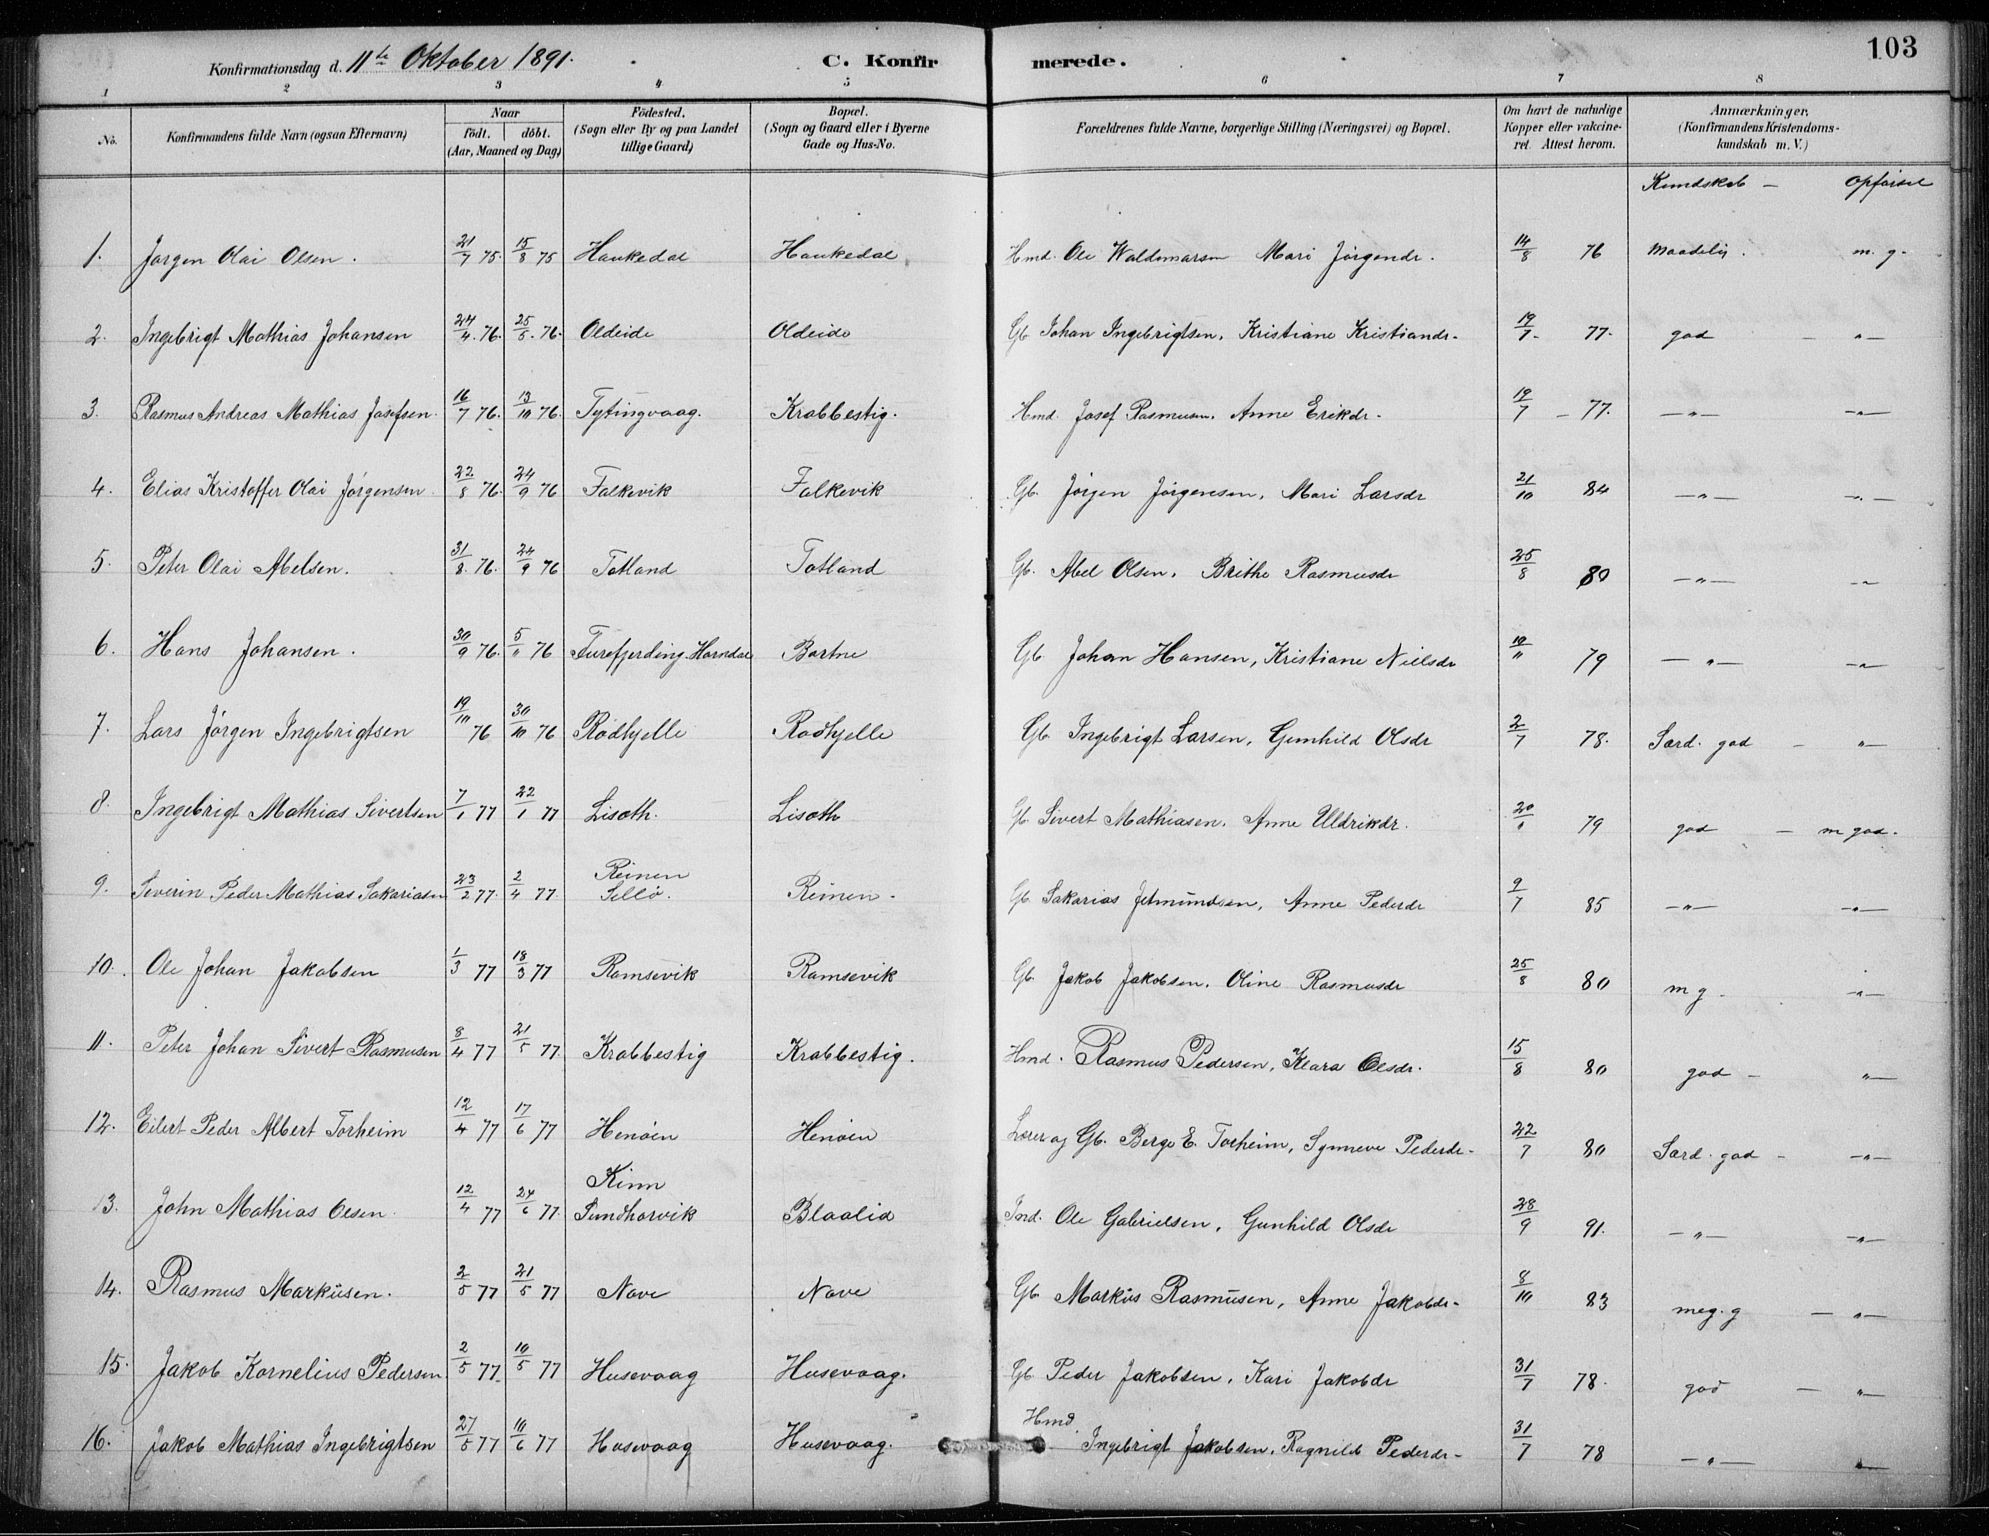 103
Konfirmationsdag d. 11te Oktober 1891. C. Konfirmerede.
1 2 3 4 5 6 7 8
No. Konfirmandens fulde Navn (ogsaa Efternavn) Naar födt. döbt. (Aar, Maaned og Dag) Födested. (Sogn eller By og paa Landet tillige Gaard) Bopæl. (Sogn og Gaard eller i Byerne Gade og Hus-No. Forældrenes fulde Navne, borgerlige Stilling (Næringsvei) og Bopæl. Om havt de naturlige Kopper eller vakcineret. Attest herom. Anmærkninger. (Konfirmandens Kristendomskundskab m. V.)
Kundskab - Opførsel
1. Jørgen Olai Olsen. 21/7 75. 15/8 75 Haukedal Haukedal Hmd. Ole Waldemarsen Mari Jørgendr. 14/8 76 Maadelig. m. g.
2. Ingebrigt Mathias Johansen 24/4 76. 25/5 76. Oldeide Oldeide Gb Johan Ingebrigtsen, Kristiane Kristiandr. 19/7 77. god - " -
3. Rasmus Andreas Mathias Josefsen. 16/7 76. 13/10 76. Tytingvaag. Krabbestig. Hmd. Josef Rasmusen. Anne Erikdr. 19/7 - 77. - " - - " -
4. Elias Kristoffer Olai Jørgensen. 22/8 76. 24/9 76 Falkevik Falkevik Gb. Jørgen Jørgensen, Mari Larsdr 21/10 84 - " - - " -
5. Peter Olai Abelsen. 31/8 76. 24/9 76 Totland Totland Gb. Abel Olsen, Brithe Rasmusdr 25/8 80 - " - - " -
6. Hans Johansen. 30/9 76. 5/11 76 Turefjerding. Horndal Bortne Gb Johan Hansen, Kristiane Nielsdr 10/11 79 - " - - " -
7. Lars Jørgen Ingebrigtsen 19/10 76 30/10 76 Rødhjelle Rødhjelle Gb. Ingebrigt Larsen, Gunhild Olsdr 2/7 78. Særd. god - " -
8. Ingebrigt Mathias Sivertsen 7/1 77 22/1 77 Lisæth. Lisæth Gb. Sivert Mathiasen. Anne Uldrikdr. 79 god - m god.
9. Severin Peder Mathias Sakariasen 23/2 77. 2/4 77. Reinen Sellö. Reinen. Gb. Sakarias Jetmundsen, Anne Pederdr 9/7 85 - " - - " -
10. Ole Johan Jakobsen 1/3 77 18/3 77 Ramsevik Ramsevik Gb. Jakob Jakobsen. Oline Rasmusdr 25/8 80 m g. - " -
11. Peter Johan Sivert Rasmusen 8/4 77 21/5 77. Krabbestig Krabbestig. Hmd. Rasmus Pedersen, Klara Olsdr. 15/8 80 god - " -
12. Eilert Peder Albert Torheim 12/4 77 17/6 77 Henöen Henöen Lærer og Gb. Berge E. Torheim, Synneve Pederdr. 22/7 80 Særd. god - - " -
13. John Mathias Olsen. 12/4 77 24/6 77 Kinn Sundhorvik Blaalid Ind. Ole Gabrielsen, Gunhild Olsdr 28/9 91. - " - - " -
14. Rasmus Markusen. 2/5 77 21/5 77 Nove Nove Gb. Markus Rasmusen, Anne Jakobdr. 8/10 83 meg. g - " -
15. Jakob Kornelius Pedersen 2/5 77. 10/5 77 Husevaag Husevaag. Gb. Peder Jakobsen, Kari Jakobdr 31/7 78. god - " -
16. Jakob Mathias Ingebrigtsen 27/5 77 10/6 77 Husevaag Husevaag. Hmd. Ingebrigt Jakobsen, Ragnild Pederdr. 31/7 78 - " - "